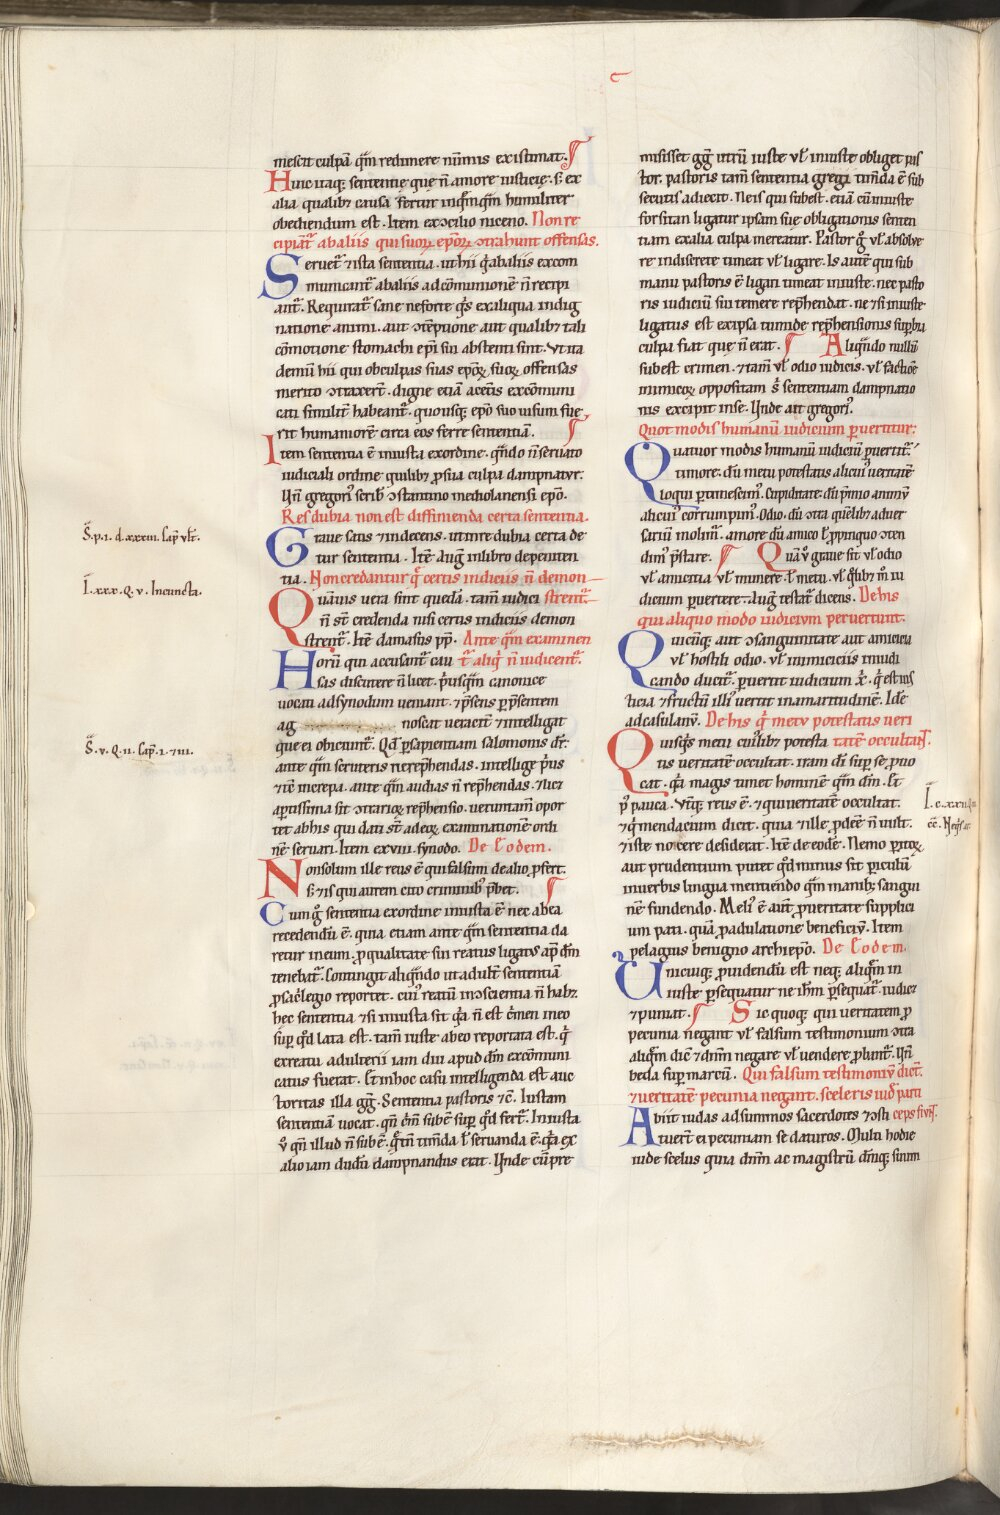 mescit culpā q̄m redimere nimis existimat.
Huic itaq; sententie que n̄ amore iusticię. s; ex
alia qualibꝫ causa fertur inq̄mq̄m humiliter
obediendum est. Item ex ↄcilio niceno. Non re
cipiāt̄ ab aliis qui suoꝝ ep̄oꝝ ↄtrahunt offensas.
Seruet̄ ⁊ ista sententia. ut hii q̄ ab aliis excom
municant̄ ab aliis ad cōmunionē n̄ recipi
ant̄. Requirat̄ sane ne forte q̄s ex aliqua indig
natione animi. aut ↄtēptione aut qualibꝫ tali
cōmotione stomachi ep̄i sui abstenti sint. Vt ita
demū hii qui ob culpas suas ep̄oꝝ suoꝝ offensas
merito ↄtraxert̄. digne etiā a cet̄is excōmuni
cati similit̄ habeant̄. quousq; ep̄o suo uisum fue
rit humaniorē circa eos ferre sententiam.
Item sententia ē iniusta ex ordine. q̄ndo n̄ seruato
iudiciali ordine quilibꝫ ꝓ sua culpa dampnatur.
Un̄ gregori᾽ scrib̄ ↄstantino mediolanensi ep̄o.
Res dubia non est diffinienda certa sententia.
Graue satis ⁊ indecens. ut in re dubia certa de
tur sententia. Itē Auḡ in libro de peniten
tia. Non credantur q̄ certis indiciis n̄ demon
strent̄.
Quāuis uera sint quedā. tam̄ iudici
n̄ st̄ credenda nisi certis indiciis demon
strent̄. Itē damasus pp̄. Ante q̄m examinen
t̄ aliq̄ n̄ iudicent̄.
Horū qui accusant̄ cau
sas discutere n̄ licet. p̄usq̄m canonice
uocati ad synodum ueniant. ⁊ p̄sens ꝑ p̄sentem
ag noscat ueraciт̄ ⁊ intelligat
que ei obiciunt̄. Qd̄ ꝑ sapientiam salomonis dr̄.
ante q̄m scruteris ne rep̄hendas. intellige p̄us
⁊ tc̄ increpa. ante q̄m audias n̄ rep̄hendas. Nec
aꝑtissima sit ↄtrarioꝝ rep̄hensio. ueruntam̄ opor
tet ab his qui dati st̄ ad eoꝝ examinationē ordi
nē seruari. Item ex viii. synodo. De Eodem.
Non solum ille reus ē qui falsum de alio ꝓfert.
s; ⁊ is qui aurem cito criminibꝫ p̄bet.
Cum g̊ sententia ex ordine iniusta ē nec ab ea
recedendū ē. quia etiam ante q̄m sententia da
retur in eum. ꝓ qualitate sui reatus ligat᾽ ap̄ dm̄
tenebat̄. Contingit aliq̄ndo ut adult̄ sententiā
ꝓ sac̄legio reportet. cui᾽ reatum in ↄscientia n̄ habꝫ
hec sententia ⁊si iniusta sit q̄a n̄ est c̄men in eo
suꝑ q̄d lata est. tam̄ iuste ab eo reportata est. q̄
ex reatu adulterii iam diu apud dm̄ excōmuni
catus fuerat. Et in hoc casu intelligenda est auc
toritas illa gḡ. Sententia pastoris ⁊c̄. Iustam
sententiā uocat. qn̄ c̄m̄ subē suꝑ q̄d fert̄. Iniusta
v̊ qn̄ illud n̄ subē. q̄ tn̄ timēda ł seruanda ē. q̄a ex
alio iam dudū dampnandus erat. Unde cū pre
misisset gḡ utrū iuste ul᾽ iniuste obliget pas
tor. pastoris tam̄ sententia gregi tim̄da ē. sub
secutis adiecit. Ne is qui subest. etiā cū iniuste
forsitan ligatur ipsam sue obligationis senten
tiam ex alia culpa mereatur. Pastor g̊ ul᾽ absolue
re indiscrete timeat ul᾽ ligare. Is autē qui sub
manu pastoris ē ligari timeat iniuste. nec pasto
ris iudiciū sui temere rep̄hendat. ne ⁊si iniuste
ligatus est ex ipsa tumide rep̄hensionis suꝑbia
culpa fiat que n̄ erat. Aliq̄ndo nullū
subest crimen. ⁊ tam̄ ul᾽ odio iudicis. ul᾽ factiōe
inimicoꝝ oppositam s̄ sententiam dampnatio
nis excipit in se. Unde ait gregori᾽.
Quot modis humanū iudicium ꝑuertitur:
Quatuor modis humanū iudicium ꝑuertit̄.
timore. dū metu potestatis alicui᾽ ueritatē
loqui ꝑtimescim᾽. Cupiditate. dū p̄mio animū
alicui᾽ corrumpim᾽. Odio. dū ↄtra quēlibꝫ aduer
sariū molimr̄. amore dū amico ł ꝓpinquo ↄten
dim᾽ p̄stare. Quā v̊ graue sit ul᾽ odio
ul᾽ amicitia ul᾽ munere. ł metu. ul᾽ q̄libꝫ m̊ iu
dicium ꝑuertere. auḡ testat̄ dicens. De his
qui aliquo modo iudicium peruertunt.
Quicūq; aut ↄsanguinitate aut amicicia
ul᾽ hostili odio. ul᾽ inimiciciis iniudi
cando ducit̄. ꝑuertit iudicium x̄. q̄ est ius
ticia ⁊ fructū illi᾽ uertit in amaritudinē. Idē
ad casulanū. De his q̄ metu potestatis ueri
tatē occultant̄.
Quisq̄s metu cui᾽libꝫ potesta
tis ueritatē occultat. iram dī suꝑ se ꝓuo
cat. q̄a magis timet hominē q̄m dm̄. Et
p᾽ pauca. Vt̄q; reus ē. ⁊ qui ueritatē occultat.
⁊ q̄ mendacium dicit. quia ⁊ ille ꝓdeē n̄ uult.
⁊ iste nocere desiderat. Itē de eodē. Nemo ꝑitoꝝ
aut prudentium putet q̄d minus sit ꝑiculū
in uerbis lingua mentiendo q̄m manibꝫ sangui
nē fundendo. Meli᾽ ē aut̄ ꝓ ueritate supplici
um pati. quā ꝓ adulatione beneficiū. Item
pelagius benigno archiep̄o. De Eodem.
Unicuiq; ꝓuidendū est neq; aliq̄m in
iuste ꝑsequatur ne ih̄m ꝑsequat̄. iudicet
⁊ puniat. Sic quoq; qui ueritatem ꝓ
pecunia negant ul᾽ falsum testimonium ↄtra
aliq̄m dic̄t dn̄m negare ul᾽ uendere ꝓbant̄. Un̄
beda suꝑ marcū. Qui falsum testimoniū dic̄t.
⁊ ueritatē pecunia negant. sceleris iud̄ parti
ceps sint.
Abiit iudas ad summos sacerdotes ⁊ ↄsti
tuert̄ ei pecuniam se daturos. Multi hodie
iude scelus quia dn̄m ac magistrū dm̄q; suum
S̄. p. i. d. xxxiii. cap̄ ult̄.
I. xxx. Q. v. Incuncta.
S̄. v. Q. ii. cap̄. i. ⁊ iii.